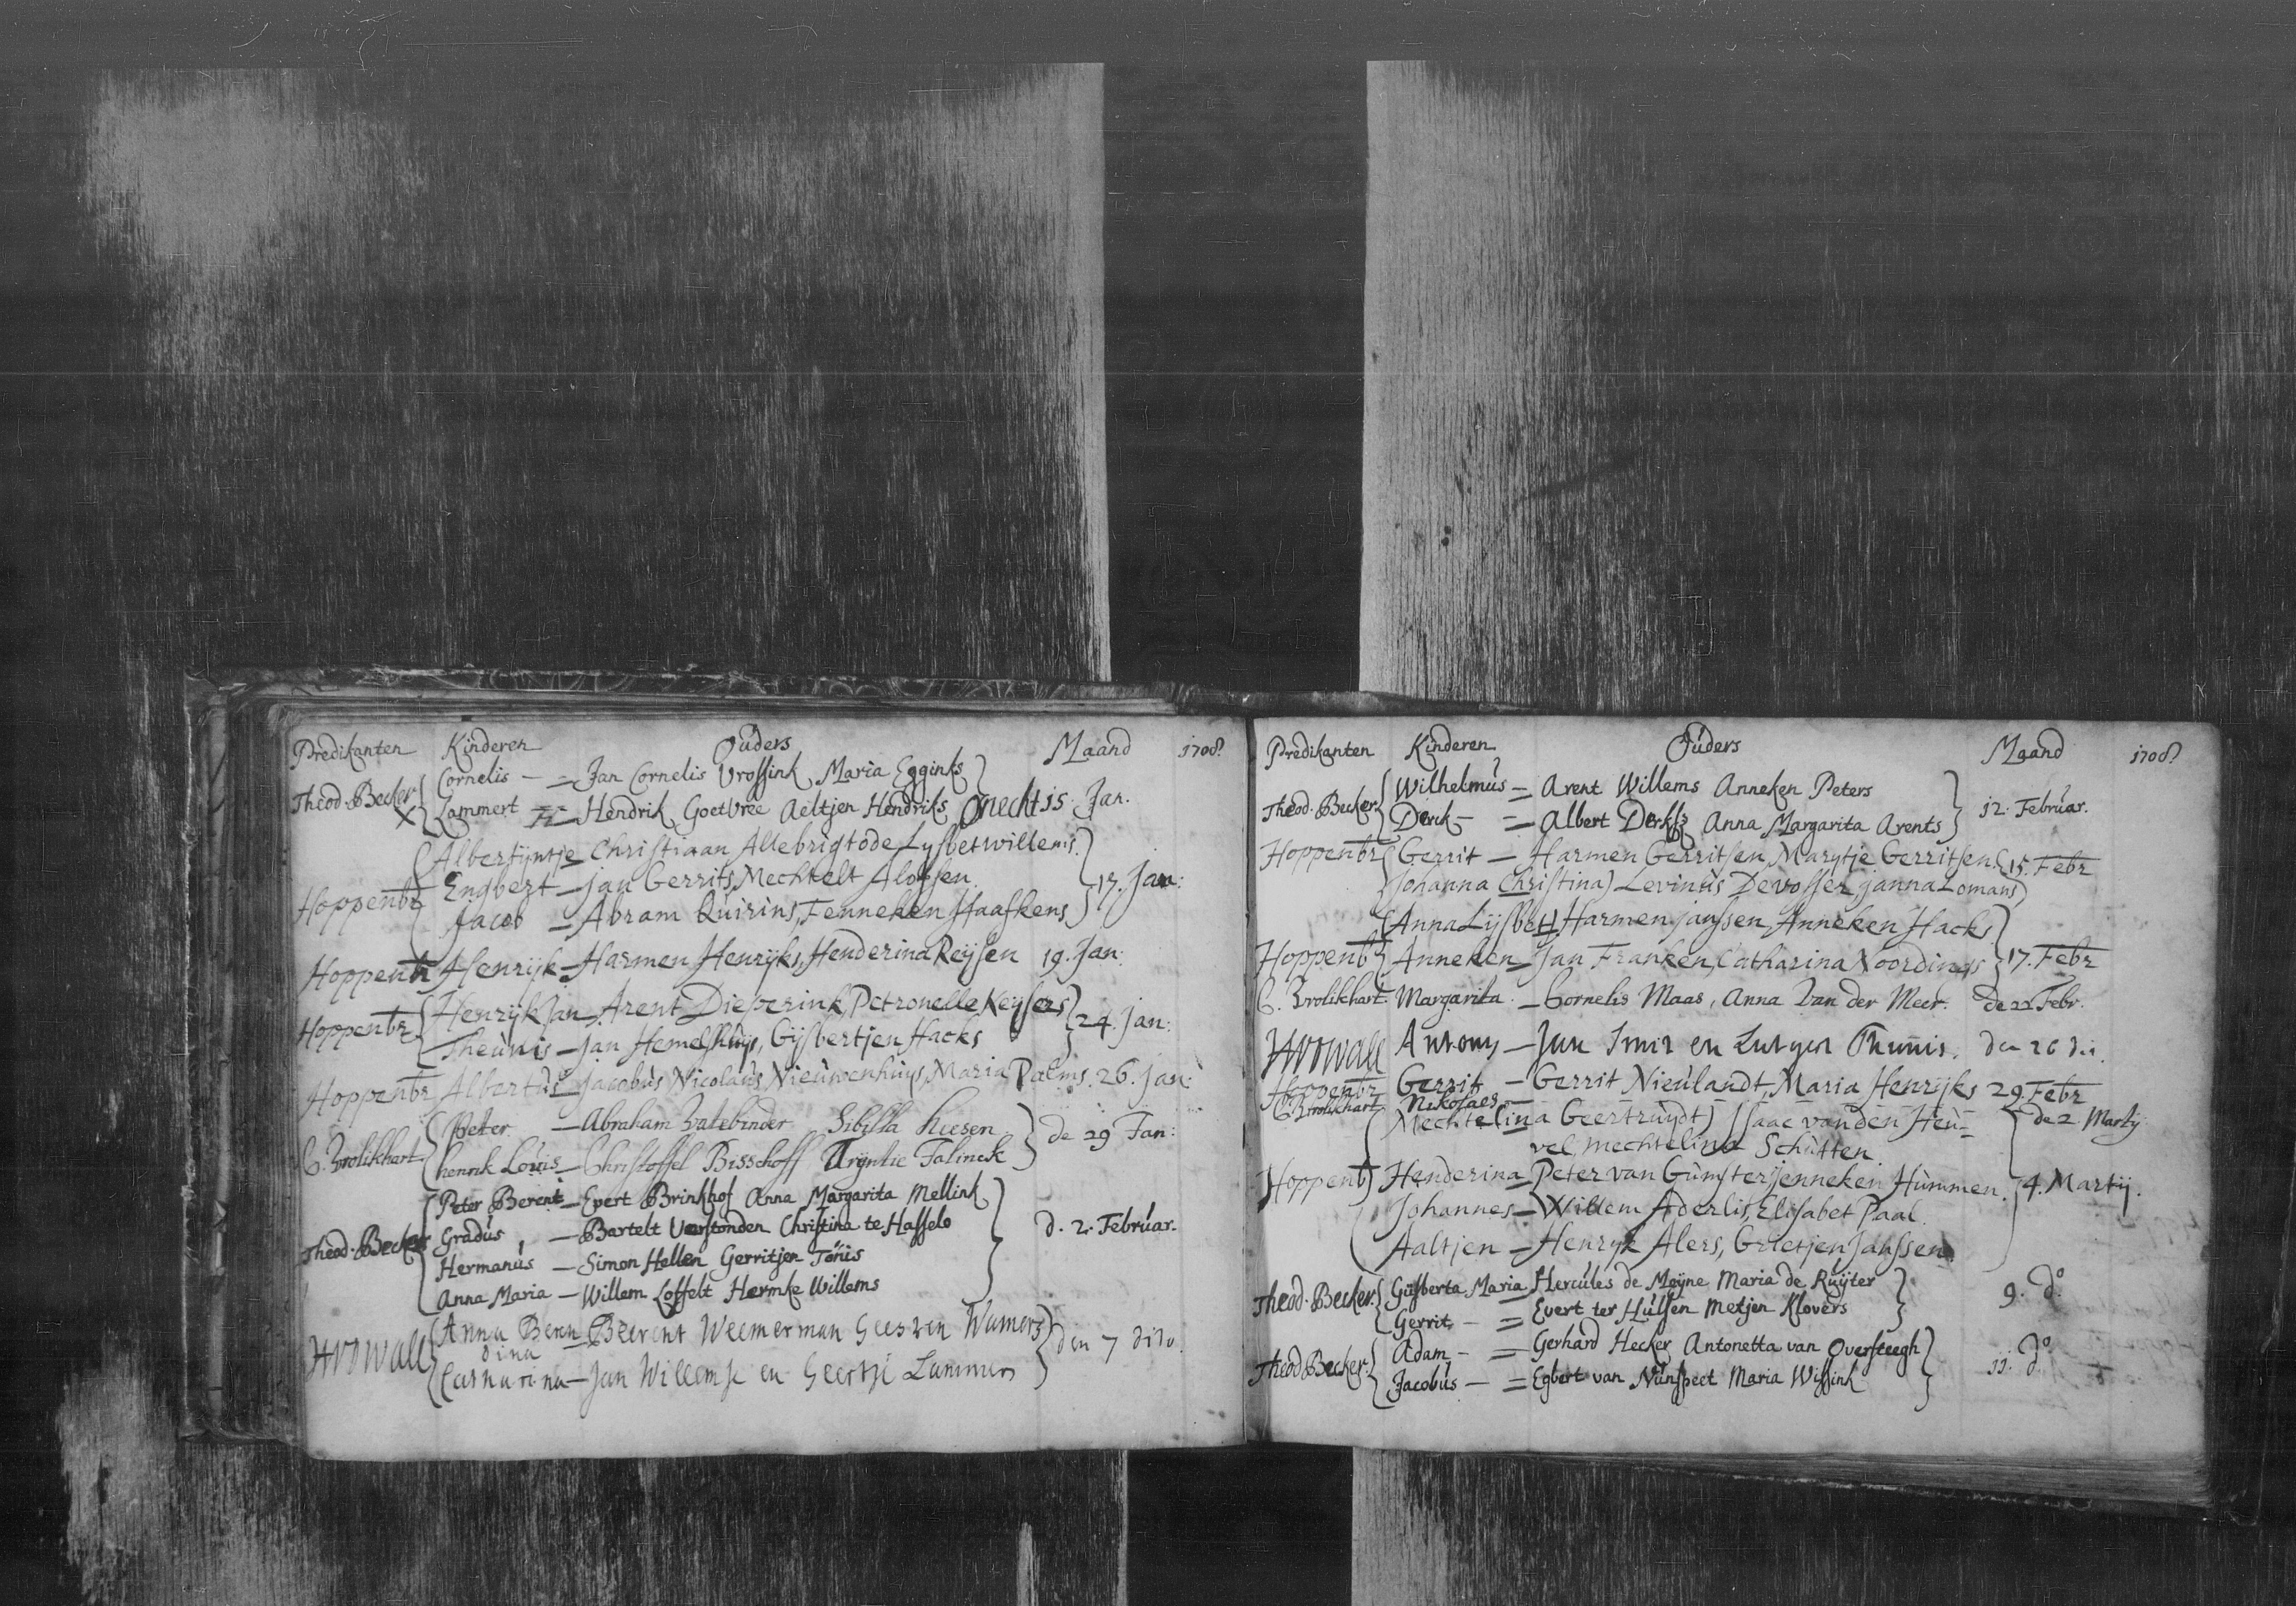 Predikanten Kinderen Ouders Maand 1708
Theod. Becker Cornelis — Jan Cornelis Vrossink Maria Egginks
Lammert — Hendrik Goetvree Aeltjen Hendriks 15. Jan.
Albertijntje Christiaan Lysbet willems.
Engbert — Jan Gerrits, Mechtelt
Hoppenbr 17. Jan:
Jacob — Abram Quirins, Fenneken Haafkens
Hoppenbr Henrijk — Harmen Henrijks, Henderina Reijsen 19. Jan:
Henrijk Jan — Arent Dieperink, Petronelle Keysers
Hoppenbr 24. Jan:
Theunis — Jan Hemelshuijs, Gijsbertjen Hacks
Hoppenbr Albertus — Jacobus Nicolaus Nieuwenhuys, Maria Palms. 26. Jan:
Peter — Abraham Sibilla Heesen
C. Vrolikhart de 29 Jan:
henrik Louis — Christoffel Bisschoff Trijntie Falinck
Peter Berent — Evert Brinkhof Anna Margarita Mellink
Gradus — Bartelt Verstonden Christina te Hasselo
Theod. Becker d. 2. Februar.
Hermanus — Simon Hellen Gerritjen Tonis
Anna Maria — Willem Loffelt Hermke Willems
Anna Beren — Beerent Weemerman Geesken Wamers
dina den 7 dito
Catharina — Jan Willemse en Geertje Lammers
Predikanten Kinderen Ouders Maand 1708
Wilhelmus — Arent Willems Anneken Peters
Theod. Becker 12. Februar.
Derck — Albert Derksz Anna Margarita Arents
Hoppenbr Gerrit — Harmen Gerritsen, Marytje Gerritsen 15. Febr
Johanna Christina) Levinus Devosser Janna Lomans
Anna Lijsbet Harmen Janssen, Anneken Hacks
Hoppenb Anneken — Jan Franken, Catharina Noordings 17. Febr
C. Vrolikhart Margarita — Cornelis Maas, Anna Van der Meer. de 22 Febr.
Antony — Jan en Lutger Thunis. den 26
Hoppenbr Gerrit — Gerrit Nieulandt, Maria Henrijks 29. Febr
C. Vrolikhart Nikolaes —
Mechtelina Geertruydt) Isaac vanden Heu- de 2 Martij
vel mechtelina Schutten
Hoppenb Henderina — Peter van Gumster, Jenneken Hummen. 4. Martij.
Johannes — Willem Aderlis, Elisabet Paal
Aaltjen — Henryk Alers, Grietjen Janssen
Theod. Becker Gijsberta Maria Hercules de Meyne Maria de Ruyter
9. do
Gerrit — Evert ter Hulsen Metjen Klovers
Adam — Gerhard Hecker Antonetta van Oversteegh
Theod Becker 11. do
Jacobus — Egbert van Nunspeet Maria Wissink